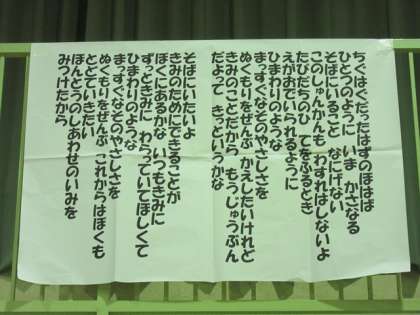 ちぐはぐだったはずのほはば
ひとつのように　いま　かさなる
そばにいること　なにげない
このしゅんかんも　わすれはしないよ
たびだちのひ　てをふるとき
えがおでいられるように
ひまわりのような
まっすぐなそのやさしさを
ぬくもりをぜんぶ　かえしたいけれど
きみのことだから　もうじゅうぶん
だよって　きっというかな
そばにいたいよ
きみのためにできることが
ぼくにあるかな　いつもきみに
ずっときみに　わらっていてほしくて
ひまわりのような
まっすぐなそのやさしさを
ぬくもりをぜんぶ　これからはぼくも
とどていきたい
ほんとうのしあわせのいみを
みつけたから